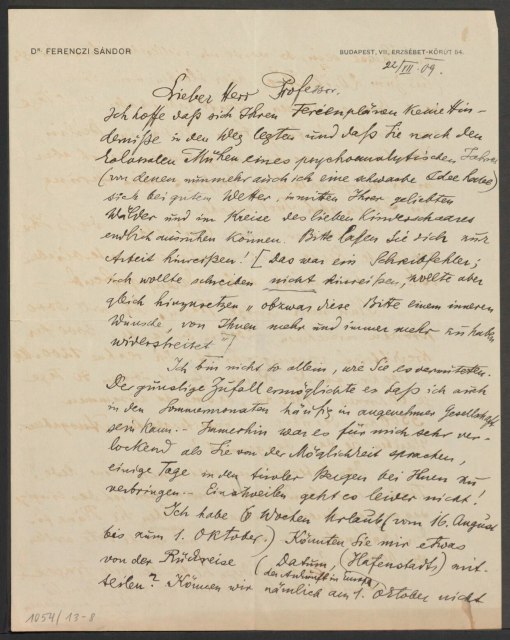 DR. FERENCZI SÁNDOR
BUDAPEST, VII., ERZSÉBET-KÖRÚT 54.
22/VII. 09.
Lieber Herr Professor.
Ich hoffe daß sich Ihren Ferienplänen keine Hin-
derniße in den Weg legten und daß Sie nach den
kolossalen Mühen eines psychoanalytischen Jahres
(von denen nunmehr auch ich eine schwache Idee habe)
sich bei gutem Wetter, inmitten Ihrer geliebten
Wälder und im Kreise des lieben Kinderschaares
endlich ausruhen können. Bitte laßen Sie sich nur
Arbeit hinreißen! [Das war ein Schreibfehler;
ich wollte schreiben nicht hinreißen, wollte aber
gleich hinzusetzen „obzwar diese Bitte einem inneren
Wunsche, von Ihnen mehr und immer mehr zu haben
widerstreitet"]
Ich bin nicht so allein, wie Sie es vermuteten.
Der günstige Zufall ermöglichte es daß ich auch
in den Sommermonaten häufig in angenehmer Gesellschaft
sein kann. – Immerhin war es für mich sehr ver-
lockend als Sie von der Möglichkeit sprachen,
einige Tage in den tiroler Bergen bei Ihnen zu
verbringen. – Einstweilen geht es leider nicht!
Ich habe 6 Wochen Urlaub (vom 16. August
bis zum 1. Oktober.) Könnten Sie mir etwas
von der Rückreise (Datum, (Hafenstadt) mit-
der Ankunft in Europa)
teilen? Können wir nämlich am 1. Oktober nicht
1054/13-8